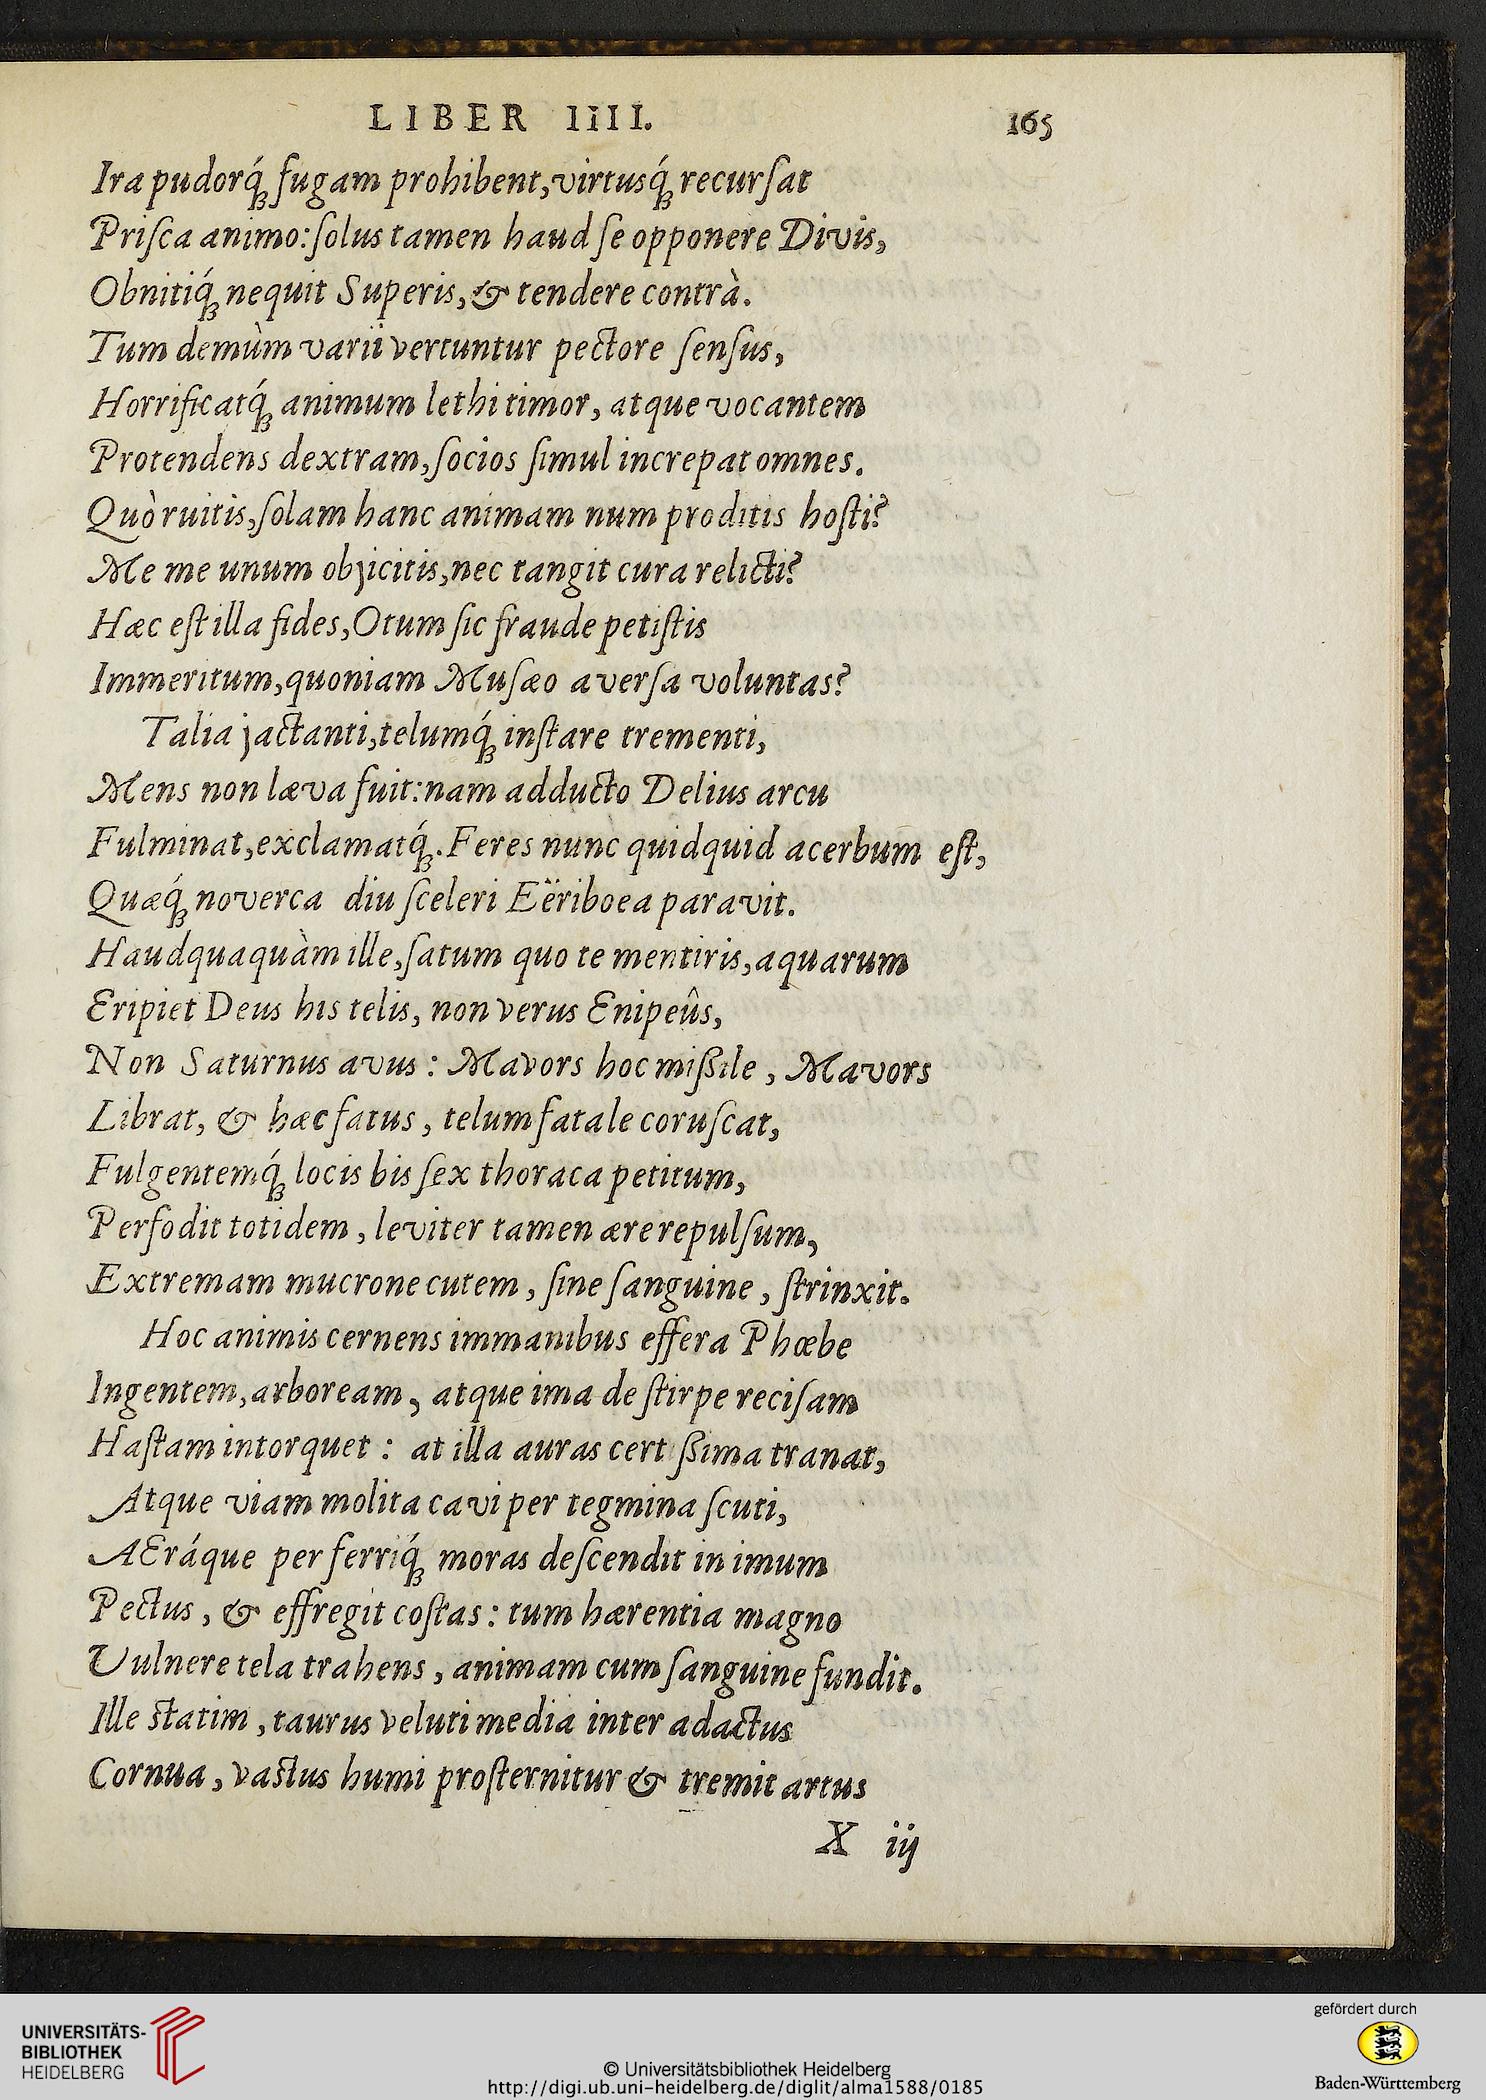 LIBER IiII. 165
Ira pudorq́; fugam prohibent, virtusq́; recurſat
Priſca animo: ſolus tamen haud ſe opponere Divis,
Obnitiq́; nequit Superis, & tendere contrà.
Tum demùm varii vertuntur pectore ſenſus,
Horrificatq́; animum lethi timor, atque vocantem
Protendens dextram, ſocios ſimul increpat omnes.
Quò ruitis, ſolam hanc animam num proditis hoſti?
Me me unum objicitis, nec tangit cura relicti?
Hæc eſt illa fides, Otum ſic fraude petiſtis
Immeritum, quoniam Muſæo averſa voluntas?
Talia jactanti, telumq́; inſtare trementi,
Mens non læva fuit: nam adducto Delius arcu
Fulminat, exclamatq́;. Feres nunc quidquid acerbum eſt,
Quæq́; noverca diu ſceleri Eëriboea paravit.
Haudquaquàm ille, ſatum quo te mentiris, aquarum
Eripiet Deus his telis, non verus Enipeûs,
Non Saturnus avus: Mavors hoc miſsile, Mavors
Librat, & hæc fatus, telum fatale coruſcat,
Fulgentemq́; locis bis ſex thoraca petitum,
Perfodit totidem, leviter tamen ære repulſum,
Extremam mucrone cutem, ſine ſanguine, ſtrinxit.
Hoc animis cernens immanibus effera Phœbe
Ingentem, arboream, atque ima de ſtirpe reciſam
Haſtam intorquet: at illa auras cert ſsima tranat,
Atque viam molita cavi per tegmina ſcuti,
AEráque per ferriq́; moras deſcendit in imum
Pectus, & effregit coſtas: tum hærentia magno
Vulnere tela trahens, animam cum ſanguine fundit.
Ille ſtatim, taurus veluti media inter adactus
Cornua, vaſtus humi proſternitur & tremit artus
X iij
UNIVERSITÄTS-
BIBLIOTHEK
HEIDELBERG
© Universitätsbibliothek Heidelberg
http://digi.ub.uni-heidelberg.de/diglit/alma1588/0185
gefördert durch
Baden-Württemberg